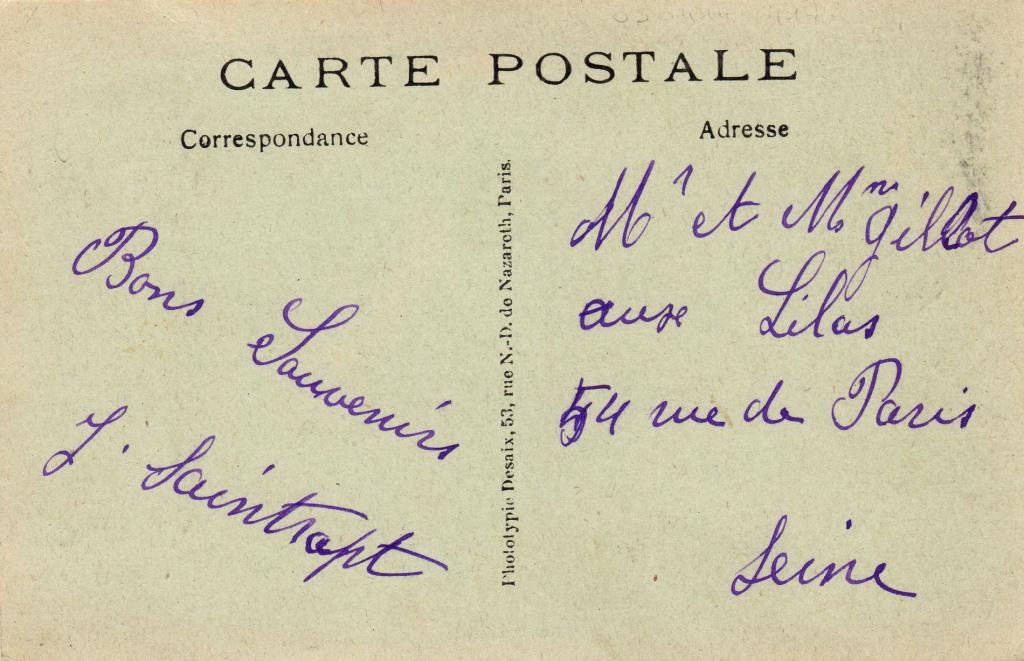 CARTE POSTALE
Correspondance
Adresse
Bons
Souvenirs
J. Saintrapt
Phototypie Desaix, 53, rue N.-D. de Nazareth, Paris.
Mr et Mme Gillot
aux Lilas
54 rue de Paris
Seine